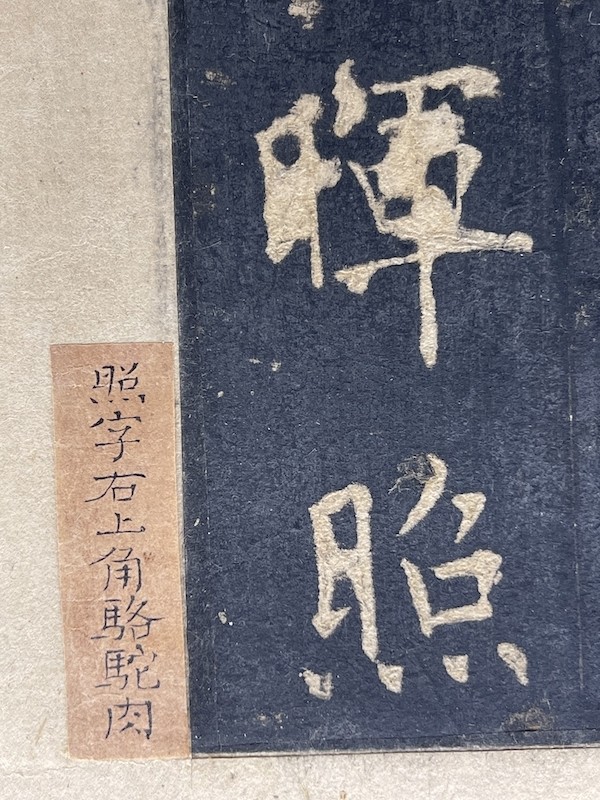 暉照
照字右上角駱駝肉